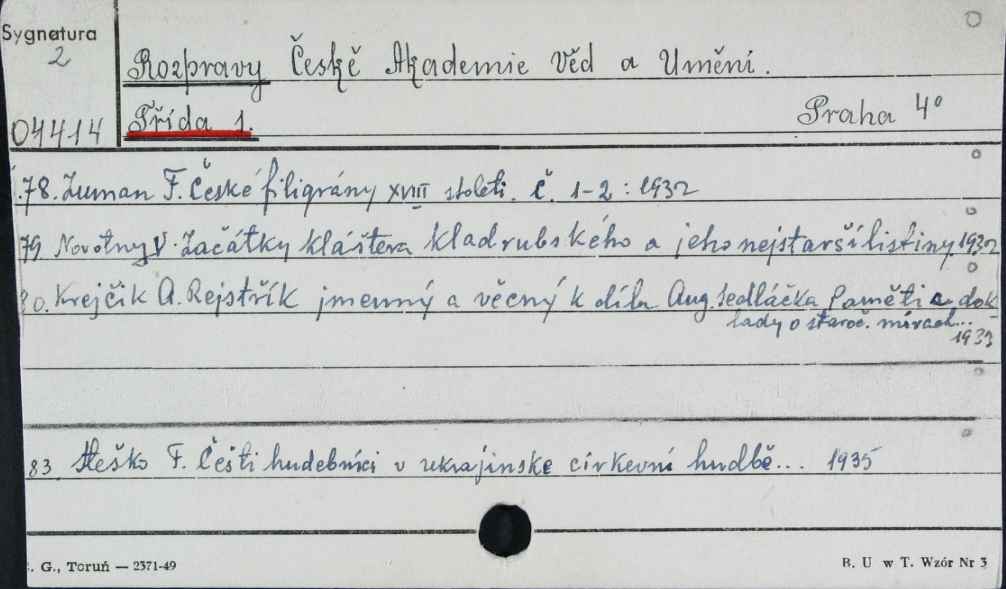 Sygnatura
2
04414
Rozpravy České Akademie Věd a Umění.
Třída 1.
Praha 4°
78. Zuman F. České filigrány XVIII století. č. 1-2 : 1932
79 Novotny V. Začátky kláštera kladrubského a jeho nejstarší listiny 1932
80. Krejčik A. Rejstřík jmenný a věcný k dílu Aug. Sedláčka Paměti a dok
lady o staroč. mírach...
1933
83 Steško F. Čeští hudebníci v ukrajinske církevní hudbě... 1935
. G., Toruń — 2371-49
B. U w T. Wzór Nr 3